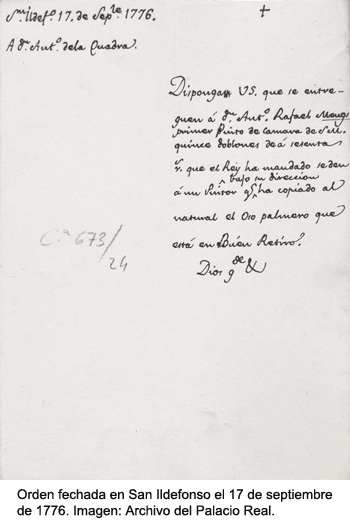 Sn. Ildefo. 17. de Sepre. 1776.
+
A Dn. Anto. de la Quadra.
Disponga VS. que se entre-
guen á Dn. Anto. Rafael Mengs
primer Pintor de Camara de S.M.
quince doblones de á sesenta
rs. que el Rey ha mandado se den
bajo su direccion
á un Pintor qe. ha copiado al
natural el Oso palmero que
está en Buen Retiro.
Dios gde. &
Ca 673/
24
Orden fechada en San Ildefonso el 17 de septiembre
de 1776. Imagen: Archivo del Palacio Real.